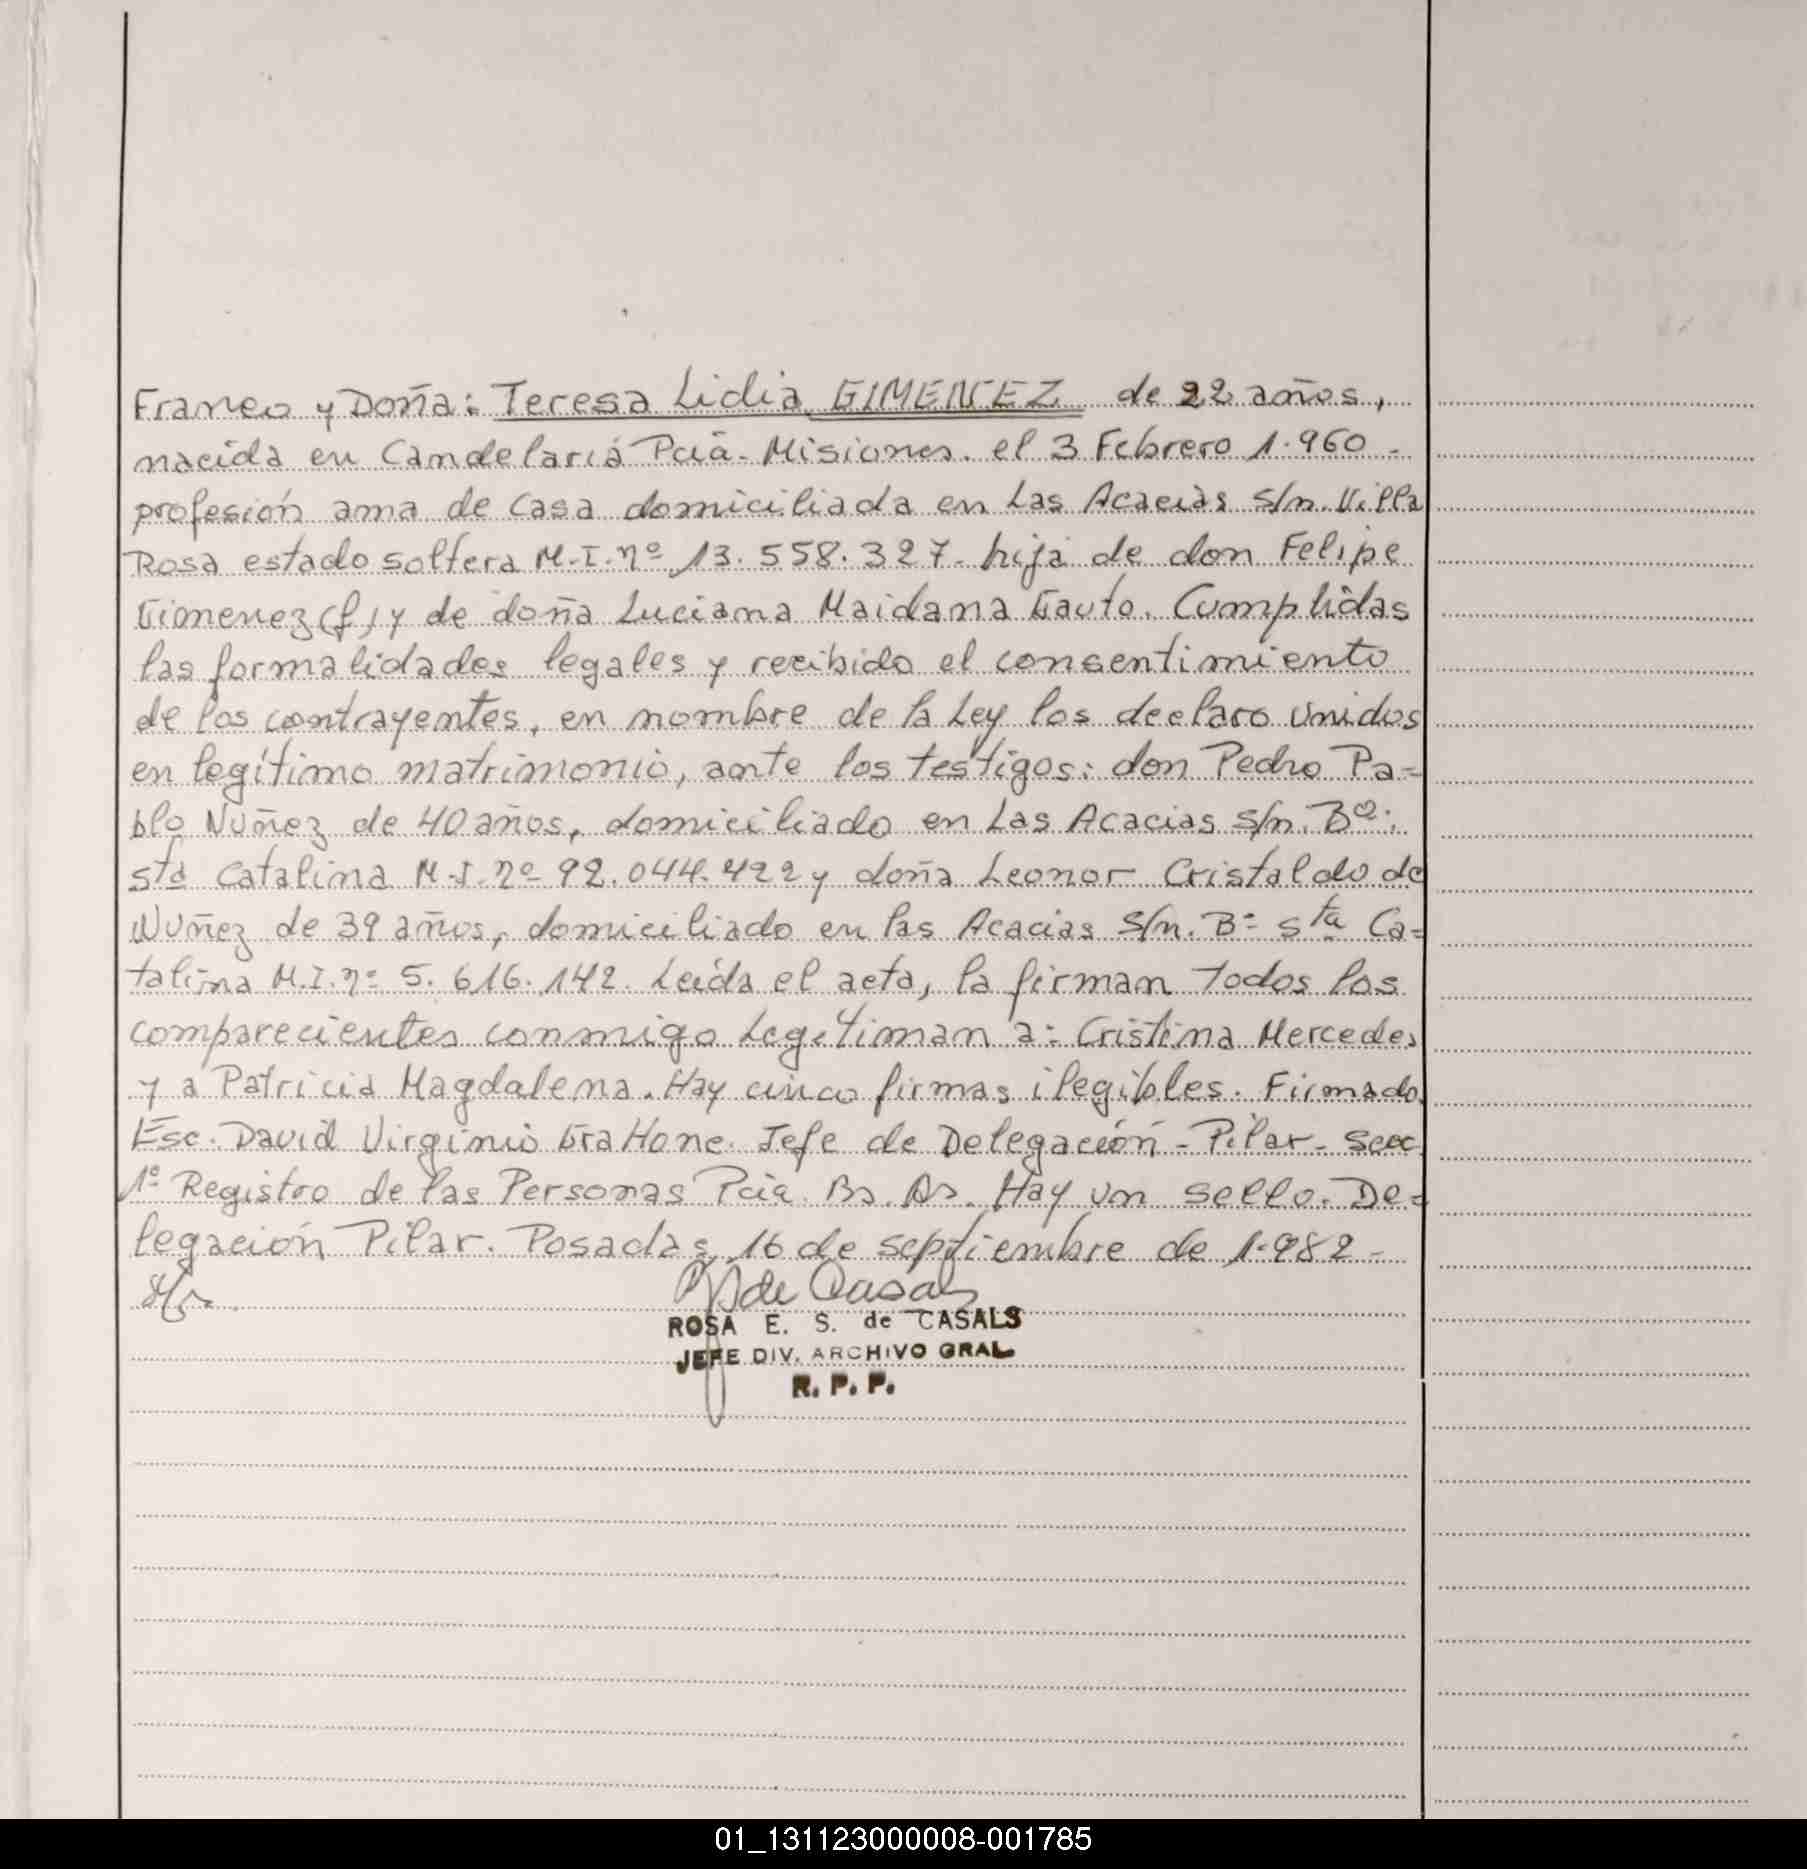 Franco y Doña: Teresa Lidia GIMENEZ de 22 años,
nacida en Candelaria Pcia. Misiones. el 3 Febrero 1.960 -
profesión ama de casa domiciliada en Las Acacias s/n. Villa
Rosa estado soltera M.I. nº 13.558.327. hija de don Felipe
Gimenez (f) y de doña Luciana Maidana Gauto. Cumplidas
las formalidades legales y recibido el consentimiento
de los contrayentes, en nombre de la Ley los declaro unidos
en legítimo matrimonio, ante los testigos: don Pedro Pa=
blo Nuñez de 40 años, domiciliado en Las Acacias s/n. Bº.
Sta Catalina M.I. nº 92.044.422 y doña Leonor Cristaldo de
Nuñez de 39 años, domiciliado en las Acacias s/n. Bº Sta Ca=
talina M.I. nº 5.616.142. Leída el acta, la firman todos los
comparecientes conmigo Legitiman a: Cristina Mercedes
y a Patricia Magdalena. Hay cinco firmas ilegibles. Firmado
Esc. David Virginio Jefe de Delegación - Pilar - Secc.
1º Registro de las Personas Pcia. Bs. As. Hay un sello. De=
legación Pilar. Posadas, 16 de septiembre de 1.982 -
de Casals
ROSA E. S. de CASALS
JEFE DIV. ARCHIVO GRAL
R. P. P.
01_131123000008-001785